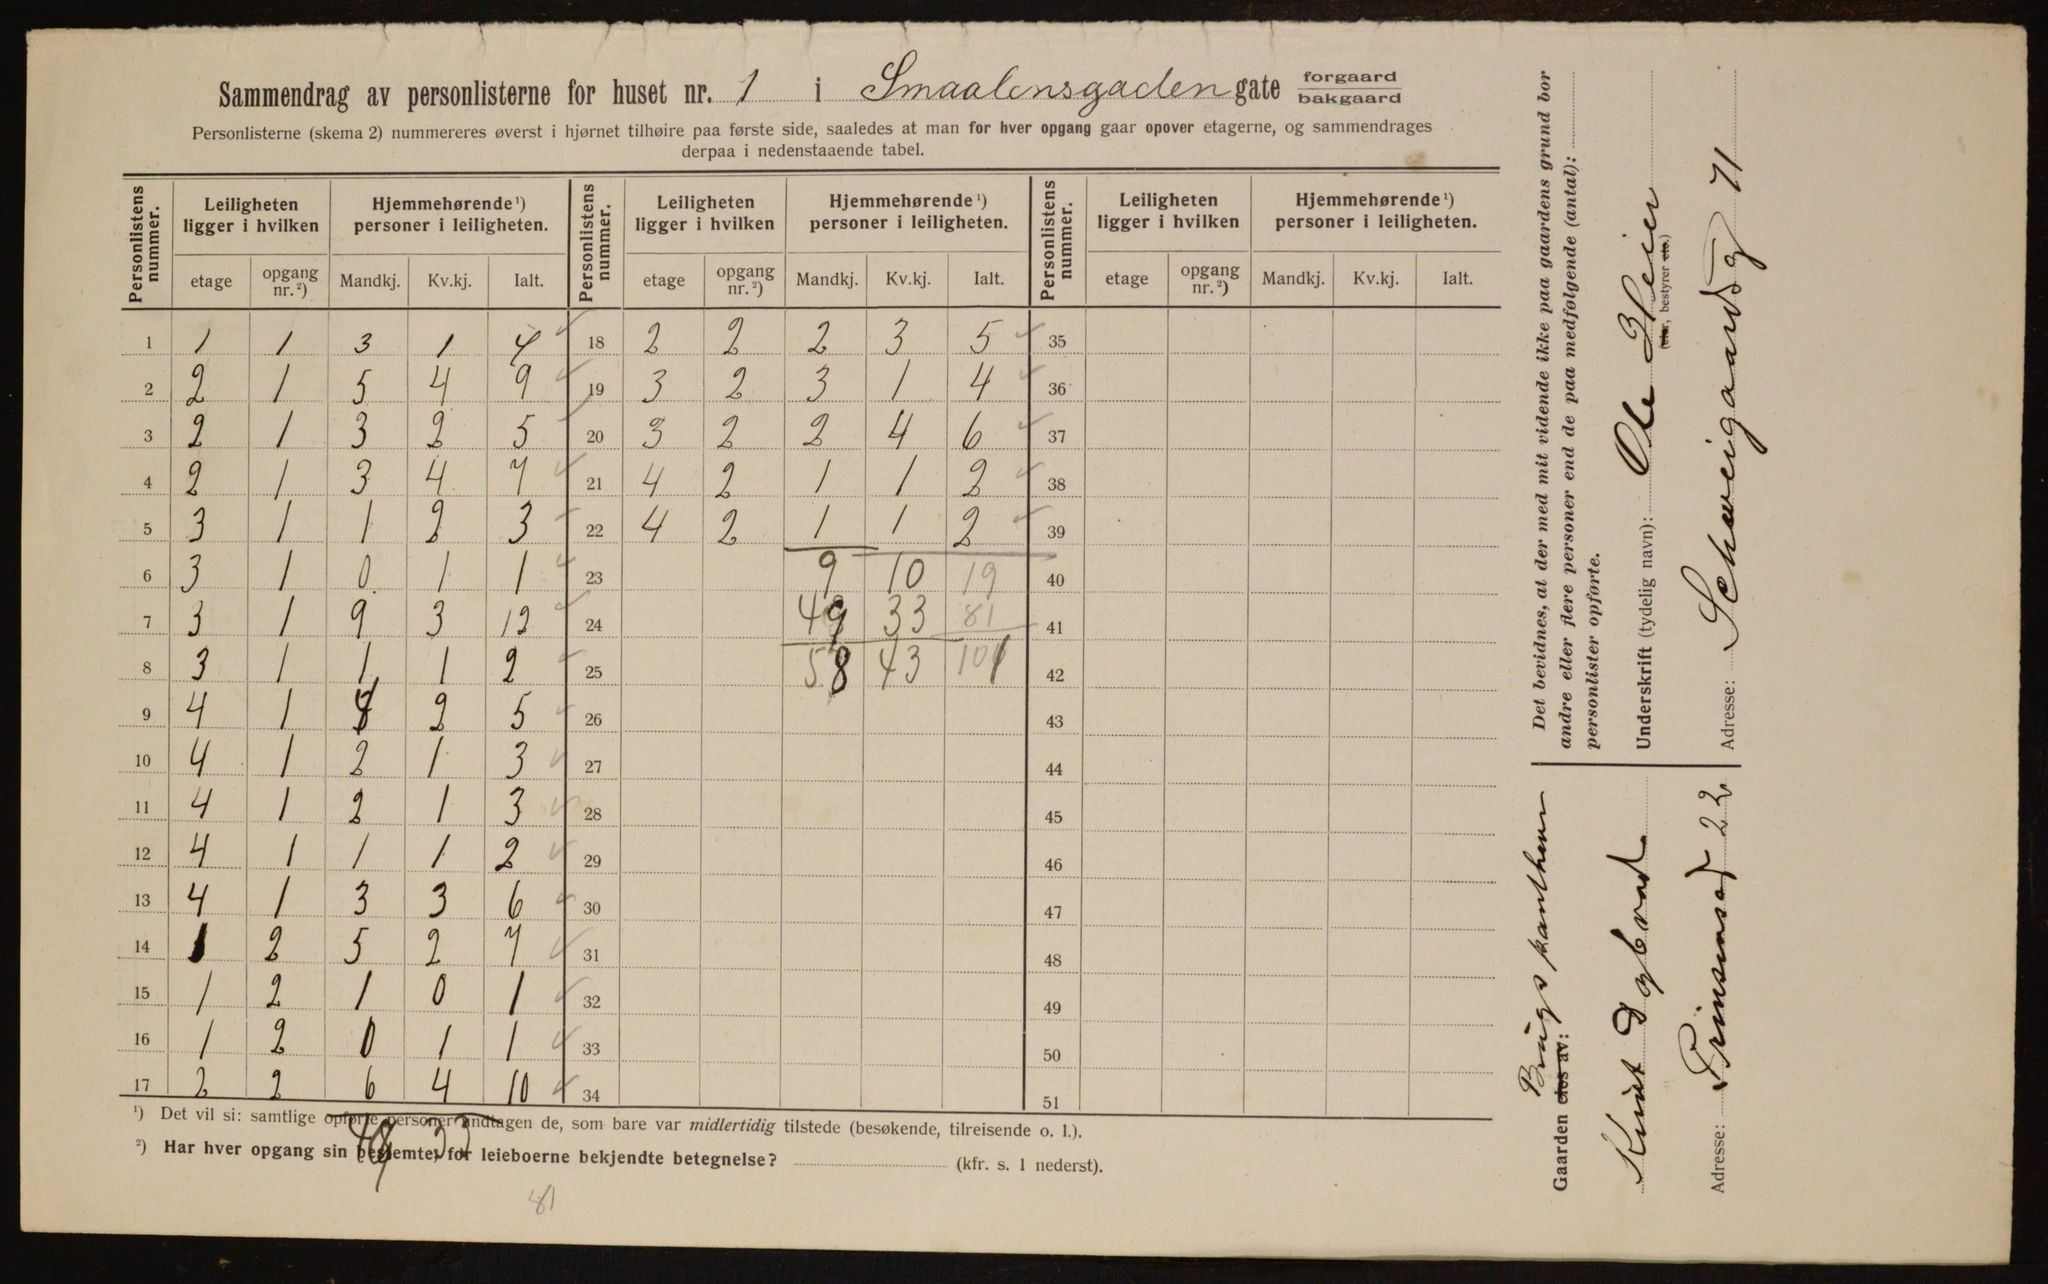 Sammendrag av personlisterne for huset nr. 1 i Smaalensgaden gate forgaard bakgaard
Personlisterne (skema 2) nummereres øverst i hjørnet tilhøire paa første side, saaledes at man for hver opgang gaar opover etagerne, og sammendrages
derpaa i nedenstaaende tabel.
Personlistens nummer. Leiligheten ligger i hvilken Hjemmehørende ¹) personer i leiligheten. Personlistens nummer. Leiligheten ligger i hvilken Hjemmehørende ¹) personer i leiligheten. Personlistens nummer. Leiligheten ligger i hvilken Hjemmehørende ¹) personer i leiligheten.
etage opgang nr. ²) Mandkj. Kv.kj. Ialt. etage opgang nr. ²) Mandkj. Kv.kj. Ialt. etage opgang nr. ²) Mandkj. Kv.kj. Ialt.
1 1 1 3 1 4 18 2 2 2 3 5 35
2 2 1 5 4 9 19 3 2 3 1 4 36
3 2 1 3 2 5 20 3 2 2 4 6 37
4 2 1 3 4 7 21 4 2 1 1 2 38
5 3 1 1 2 3 22 4 2 1 1 2 39
6 3 1 0 1 1 23 9 10 19 40
7 3 1 9 3 12 24 49 33 81 41
8 3 1 1 1 2 25 58 43 101 42
9 4 1 2 5 26 43
10 4 1 2 1 3 27 44
11 4 1 2 1 3 28 45
12 4 1 1 1 2 29 46
13 4 1 3 3 6 30 47
14 1 2 5 2 7 31 48
15 1 2 1 0 1 32 49
16 1 2 0 1 1 33 50
17 2 2 6 4 10 34 51
¹) Det vil si: samtlige opførte personer undtagen de, som bare var midlertidig tilstede (besøkende, tilreisende o. l.).
²) Har hver opgang sin bestemte, for leieboerne bekjendte betegnelse? (kfr. s. 1 nederst).
33
81
Det bevidnes, at der med mit vidende ikke paa gaardens grund bor
andre eller flere personer end de paa medfølgende (antal):
personlister opførte.
Underskrift (tydelig navn): Ole Heier
(eier, bestyrer etc.)
Adresse: Schweigaardsg 71
Gaarden eies av:
Adresse: Prinsensgt 22